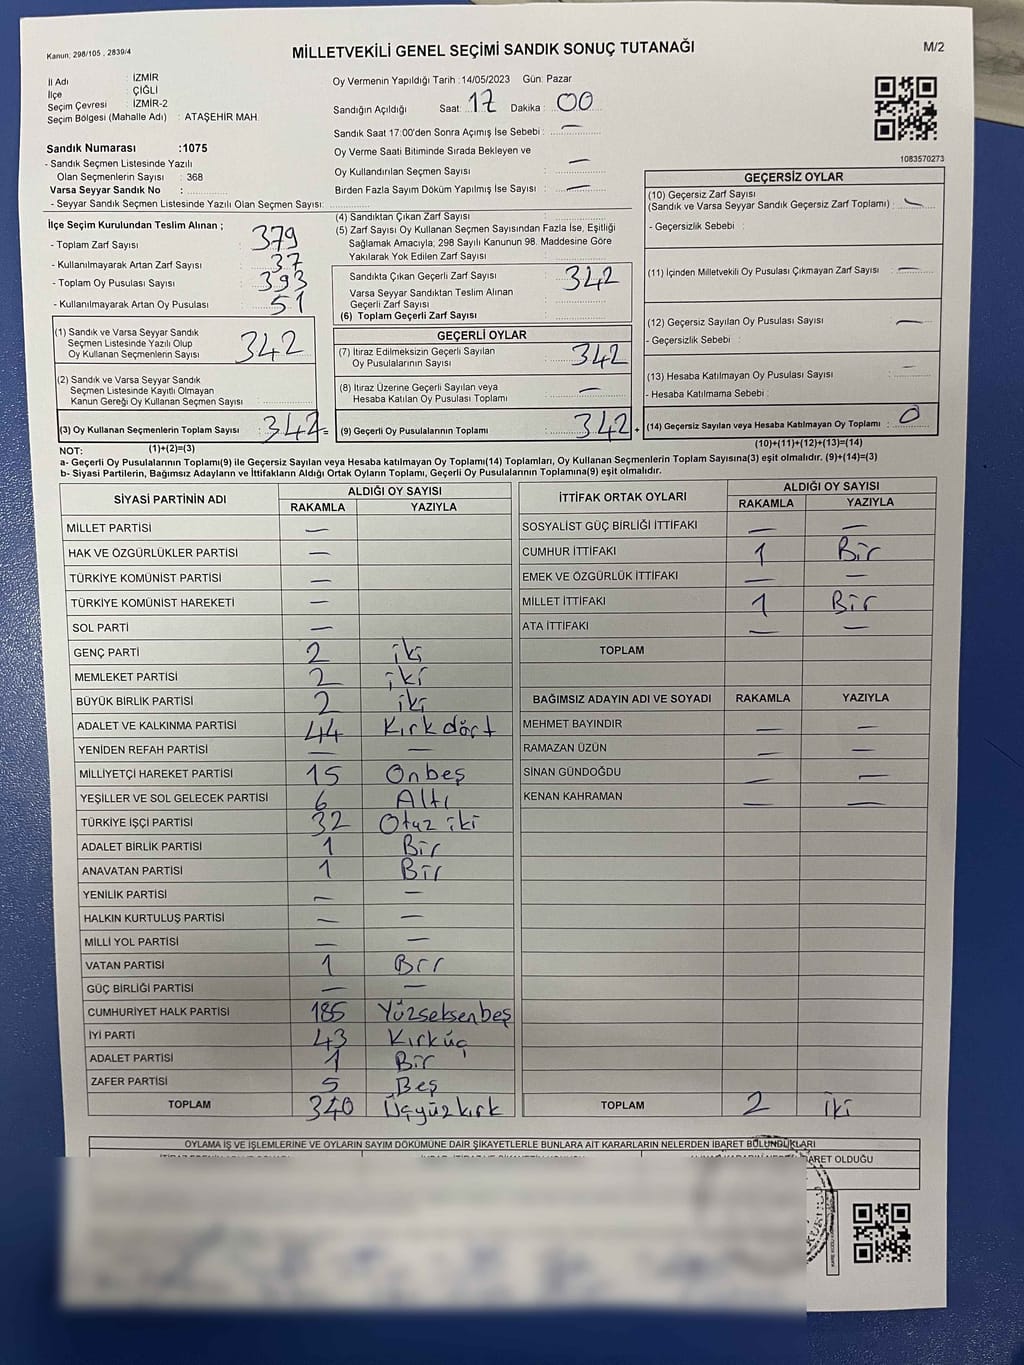 Kanun: 298/105 . 2839/4
MİLLETVEKİLİ GENEL SEÇİMİ SANDIK SONUÇ TUTANAĞI
M/2
İl Adı : İZMİR
İlçe : ÇİĞLİ
Seçim Çevresi : İZMİR-2
Seçim Bölgesi (Mahalle Adı) : ATAŞEHİR MAH.
Sandık Numarası :1075
- Sandık Seçmen Listesinde Yazılı
Olan Seçmenlerin Sayısı : 368
Varsa Seyyar Sandık No :
- Seyyar Sandık Seçmen Listesinde Yazılı Olan Seçmen Sayısı:
Oy Vermenin Yapıldığı Tarih :14/05/2023 Gün: Pazar
Sandığın Açıldığı Saat: 17 Dakika : 00
Sandık Saat 17:00'den Sonra Açımış İse Sebebi : —
Oy Verme Saati Bitiminde Sırada Bekleyen ve
Oy Kullandırılan Seçmen Sayısı : —
Birden Fazla Sayım Döküm Yapılmış İse Sayısı : —
1083570273
İlçe Seçim Kurulundan Teslim Alınan ;
- Toplam Zarf Sayısı : 379
- Kullanılmayarak Artan Zarf Sayısı : 37
- Toplam Oy Pusulası Sayısı : 393
- Kullanılmayarak Artan Oy Pusulası : 51
(1) Sandık ve Varsa Seyyar Sandık
Seçmen Listesinde Yazılı Olup
Oy Kullanan Seçmenlerin Sayısı : 342
(2) Sandık ve Varsa Seyyar Sandık
Seçmen Listesinde Kayıtlı Olmayan
Kanun Gereği Oy Kullanan Seçmen Sayısı :
(3) Oy Kullanan Seçmenlerin Toplam Sayısı : 342 =
(4) Sandıktan Çıkan Zarf Sayısı :
(5) Zarf Sayısı Oy Kullanan Seçmen Sayısından Fazla İse, Eşitliği
Sağlamak Amacıyla; 298 Sayılı Kanunun 98. Maddesine Göre
Yakılarak Yok Edilen Zarf Sayısı :
Sandıkta Çıkan Geçerli Zarf Sayısı : 342
Varsa Seyyar Sandıktan Teslim Alınan
Geçerli Zarf Sayısı :
(6) Toplam Geçerli Zarf Sayısı :
GEÇERLİ OYLAR
(7) İtiraz Edilmeksizin Geçerli Sayılan
Oy Pusulalarının Sayısı : 342
(8) İtiraz Üzerine Geçerli Sayılan veya
Hesaba Katılan Oy Pusulası Toplamı : —
(9) Geçerli Oy Pusulalarının Toplamı : 342 +
GEÇERSİZ OYLAR
(10) Geçersiz Zarf Sayısı
(Sandık ve Varsa Seyyar Sandık Geçersiz Zarf Toplamı) : —
- Geçersizlik Sebebi :
(11) İçinden Milletvekili Oy Pusulası Çıkmayan Zarf Sayısı : —
(12) Geçersiz Sayılan Oy Pusulası Sayısı : —
- Geçersizlik Sebebi :
(13) Hesaba Katılmayan Oy Pusulası Sayısı : —
- Hesaba Katılmama Sebebi :
(14) Geçersiz Sayılan veya Hesaba Katılmayan Oy Toplamı : 0
NOT: (1)+(2)=(3) (10)+(11)+(12)+(13)=(14)
a- Geçerli Oy Pusulalarının Toplamı(9) ile Geçersiz Sayılan veya Hesaba katılmayan Oy Toplamı(14) Toplamları, Oy Kullanan Seçmenlerin Toplam Sayısına(3) eşit olmalıdır. (9)+(14)=(3)
b- Siyasi Partilerin, Bağımsız Adayların ve İttifakların Aldığı Ortak Oyların Toplamı, Geçerli Oy Pusulalarının Toplamına(9) eşit olmalıdır.
SİYASİ PARTİNİN ADI ALDIĞI OY SAYISI
RAKAMLA YAZIYLA
MİLLET PARTİSİ —
HAK VE ÖZGÜRLÜKLER PARTİSİ —
TÜRKİYE KOMÜNİST PARTİSİ —
TÜRKİYE KOMÜNİST HAREKETİ —
SOL PARTİ —
GENÇ PARTİ 2 iki
MEMLEKET PARTİSİ 2 iki
BÜYÜK BİRLİK PARTİSİ 2 iki
ADALET VE KALKINMA PARTİSİ 44 Kırk dört
YENİDEN REFAH PARTİSİ — —
MİLLİYETÇİ HAREKET PARTİSİ 15 Onbeş
YEŞİLLER VE SOL GELECEK PARTİSİ 6 Altı
TÜRKİYE İŞÇİ PARTİSİ 32 Otuz iki
ADALET BİRLİK PARTİSİ 1 Bir
ANAVATAN PARTİSİ 1 Bir
YENİLİK PARTİSİ — —
HALKIN KURTULUŞ PARTİSİ — —
MİLLİ YOL PARTİSİ — —
VATAN PARTİSİ 1 Bir
GÜÇ BİRLİĞİ PARTİSİ — —
CUMHURİYET HALK PARTİSİ 185 Yüzseksenbeş
İYİ PARTİ 43 Kırküç
ADALET PARTİSİ 1 Bir
ZAFER PARTİSİ 5 Beş
TOPLAM 340 Üçyüzkırk
İTTİFAK ORTAK OYLARI ALDIĞI OY SAYISI
RAKAMLA YAZIYLA
SOSYALİST GÜÇ BİRLİĞİ İTTİFAKI — —
CUMHUR İTTİFAKI 1 Bir
EMEK VE ÖZGÜRLÜK İTTİFAKI — —
MİLLET İTTİFAKI 1 Bir
ATA İTTİFAKI — —
TOPLAM
BAĞIMSIZ ADAYIN ADI VE SOYADI RAKAMLA YAZIYLA
MEHMET BAYINDIR — —
RAMAZAN ÜZÜN — —
SİNAN GÜNDOĞDU — —
KENAN KAHRAMAN — —
TOPLAM 2 iki
OYLAMA İŞ VE İŞLEMLERİNE VE OYLARIN SAYIM DÖKÜMÜNE DAİR ŞİKAYETLERLE BUNLARA AİT KARARLARIN NELERDEN İBARET BULUNDUKLARI
BARET OLDUĞU